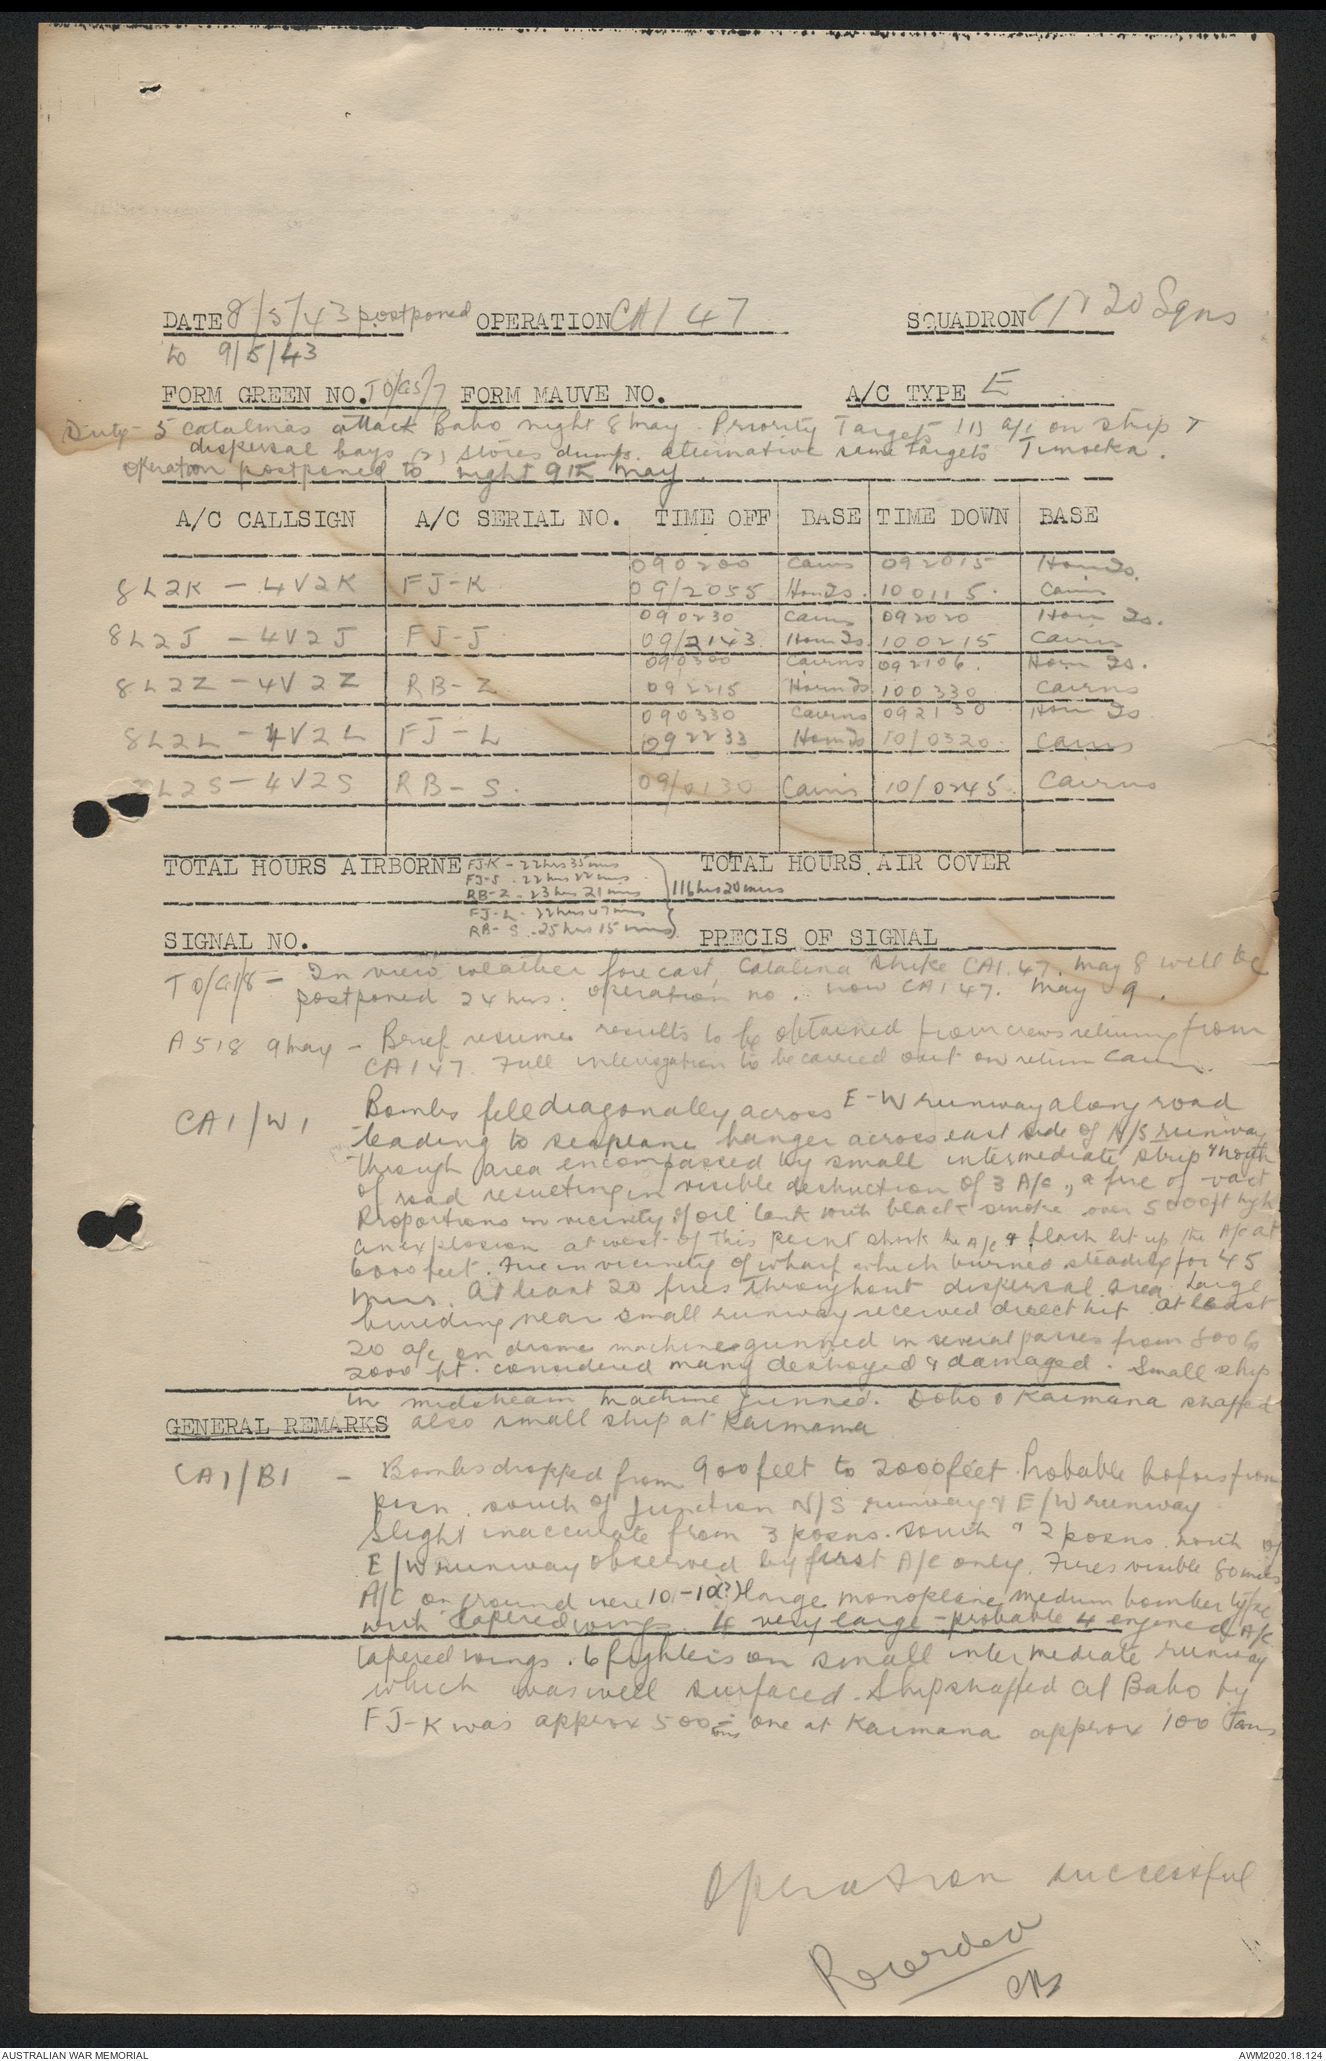 DATE 8/5/43 postponed OPERATION CA1 47 SQUADRON 11 & 20 Sqns
to 9/5/43
FORM GREEN NO. TO/G5/7 FORM MAUVE NO. A/C TYPE E
Duty - 5 catalinas attack Babo night 8 may. Priority Targets (1) a/c on strip &
dispersal bays (2) stores dumps. alternative same targets Timoeka.
operation postponed to night 9th may
A/C CALLSIGN A/C SERIAL NO. TIME OFF BASE TIME DOWN BASE
090200 Cairns 092015 Horn Is.
8L2K - 4V2K FJ-K 09/2055 Horn Is. 100115. Cairns
090230 Cairns 092020 Horn Is.
8L2J - 4V2J FJ-J 09/2143 Horn Is 100215 Cairns
090300 Cairns 092106. Horn Is.
8L2Z - 4V2Z RB-Z 092215 Horn Is 100330 Cairns
090330 Cairns 092130 Horn Is
8L2L - 4V2L FJ-L 092233 Horn Is 10/0320 Cairns
8L2S - 4V2S RB-S. 09/0130 Cairns 10/0245. Cairns
TOTAL HOURS AIRBORNE FJ-K - 22hrs 35mins TOTAL HOURS AIR COVER
FJ-J. 22hrs 22mins.
RB-Z. 23hrs 21mins 116hrs 20mins
FJ-L. 22hrs 47mins
RB-S. 25hrs 15mins
SIGNAL NO. PRECIS OF SIGNAL
TO/G1/8 - In view weather forecast, Catalina strike CA1.47. may 8 will be
postponed 24 hrs. operation no. now CA147. may 9.
A518 9 may - Brief resume results to be obtained from crews returning from
CA147. Full interrogation to be carried out on return Cairns.
CA1/W1 Bombs fell diagonally across E-W runway along road
leading to seaplane hanger across east side of N/S runway
through area encompassed by small intermediate strip & north
of road resulting in visible destruction of 3 A/c., a fire of vast
proportions in vicinity of oil tank with black smoke over 5000ft high
an explosion at west of this point shook the A/c & flash lit up the A/c at
6000 feet. Fire in vicinity of wharf which burned steadily for 45
mins. At least 20 fires throughout dispersal area. Large
building near small runway received direct hit. at least
20 a/c on drome machine gunned in several passes from 800 to
2000 ft. considered many destroyed & damaged. Small ship
in midstream machine gunned. Dobo & Kaimana strafed
GENERAL REMARKS also small ship at Kaimana
CA1/B1 - Bombs dropped from 900 feet to 2000 feet. Probable bofors from
posn. south of junction N/S runway & E/W runway
slight inaccurate from 3 posns. south & 2 posns. north of
E/W runway observed by first A/c only. Fires visible 80 miles
A/C on ground were 10-12(?) large monoplane medium bomber type
with tapered wings. 4 very large - probable 4 engined A/c
tapered wings. 6 fighters on small intermediate runway
which was well surfaced. Ship strafed at Babo by
FJ-K was approx 500 tons one at Kaimana approx 100 Tons
Operation successful
Recorded
AUSTRALIAN WAR MEMORIAL AWM2020.18.124